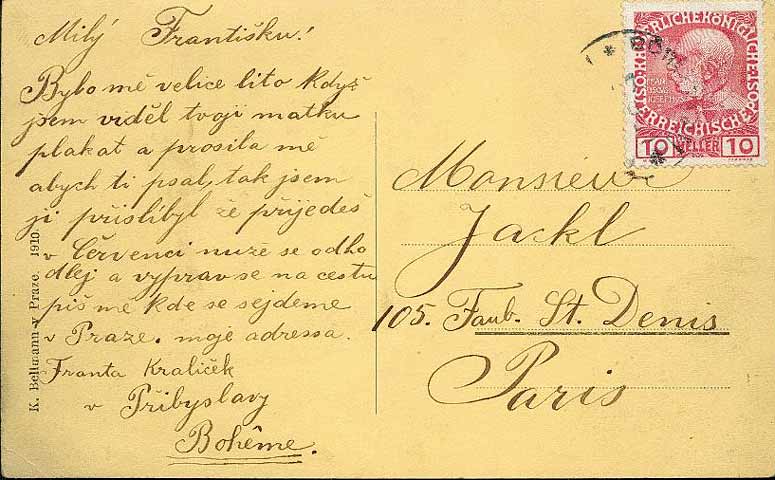 Milý Františku!
Bylo mě velice lito když
jsem viděl tvoji matku
plakat a prosila mě
abych ti psal, tak jsem
ji přislíbyl že přijedeš
v Červenci nuže se odho
dlej a vyprav se na cestu
piš mě kde se sejdeme
v Praze. moje adressa.
Franta Kraliček
v Přibyslavy
Bohême.
K. Bellmann v Praze. 1910.
Monsieur
Jackl
105. Faub. St. Denis
Paris
10 HELLER 10